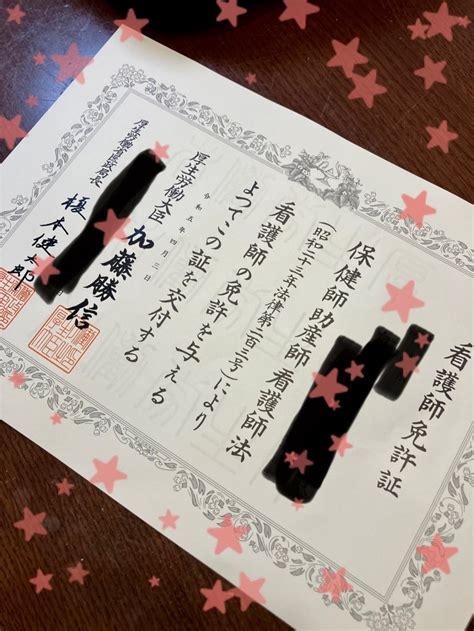 看護師免許証
保健師助産師看護師法
(昭和二十三年法律第二百三号)により
看護師の免許を与える
よつてこの証を交付する
令和五年四月三日
厚生労働大臣 加藤勝信
厚生労働省医政局長 榎本健太郎